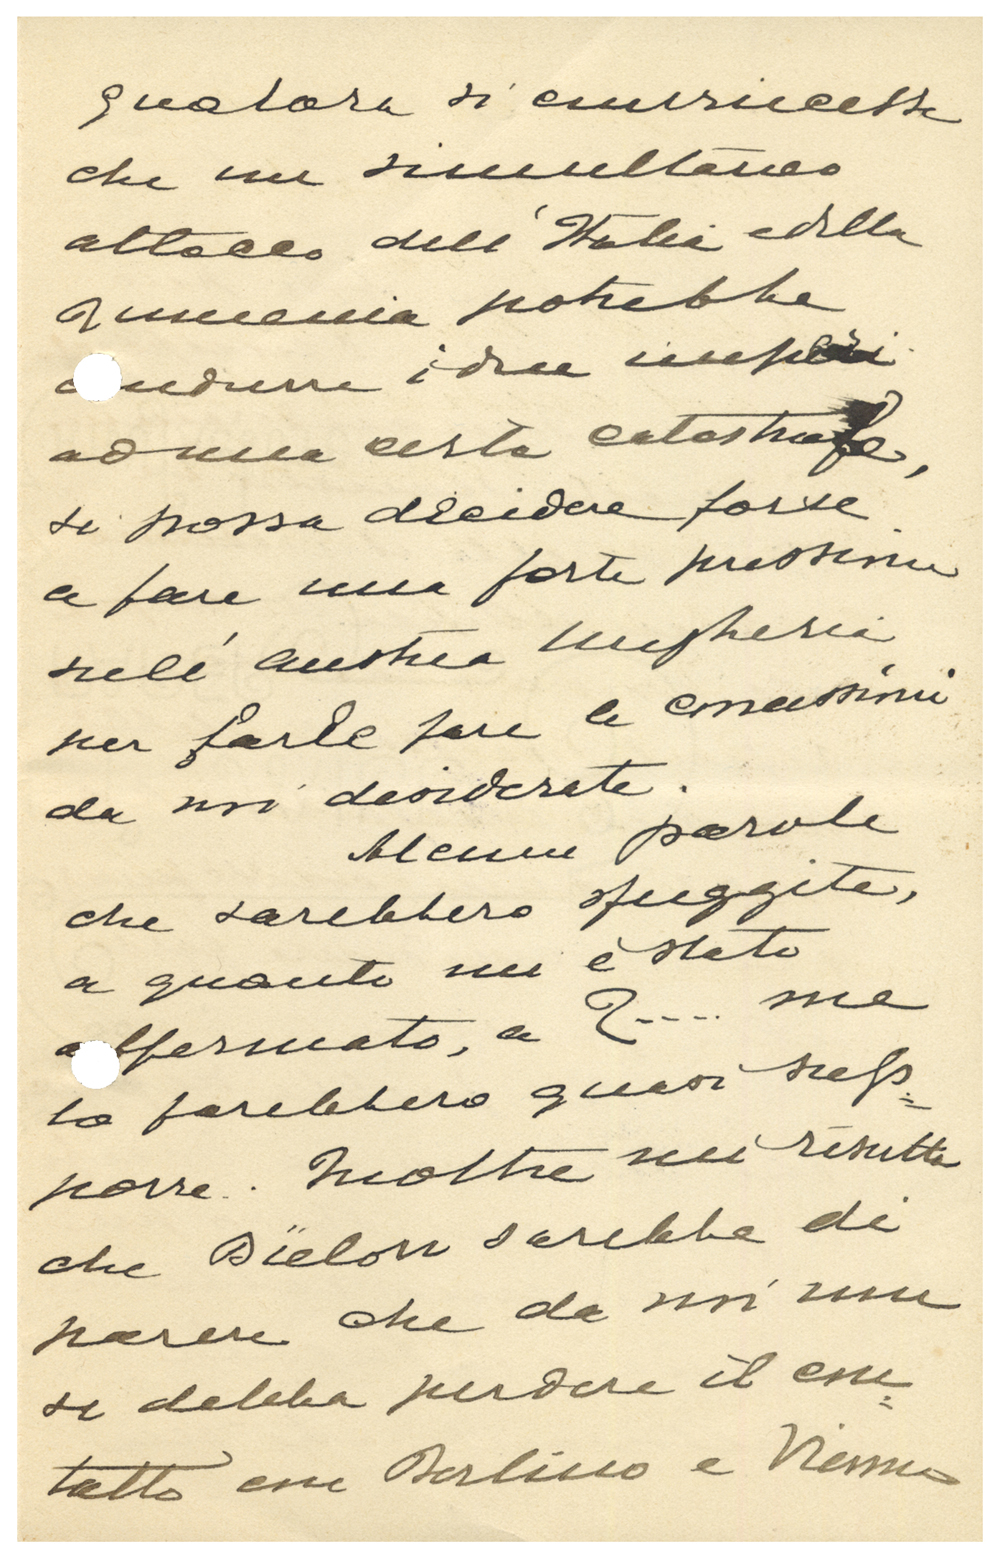 qualora si convincesse
che un simultaneo
attacco dell'Italia e della
Rumenia potrebbe
condurre i due imperi
ad una certa catastrofe,
si possa decidere forse
a fare una forte pressione
sull'Austria Ungheria
per farle fare le concessioni
da noi desiderate.
Alcune parole
che sarebbero sfuggite,
a quanto mi è stato
affermato, a Z.... me
lo farebbero quasi sup=
porre. Inoltre mi risulta
che Bülow sarebbe di
parere che da noi non
si debba perdere il con=
tatto con Berlino e Vienna